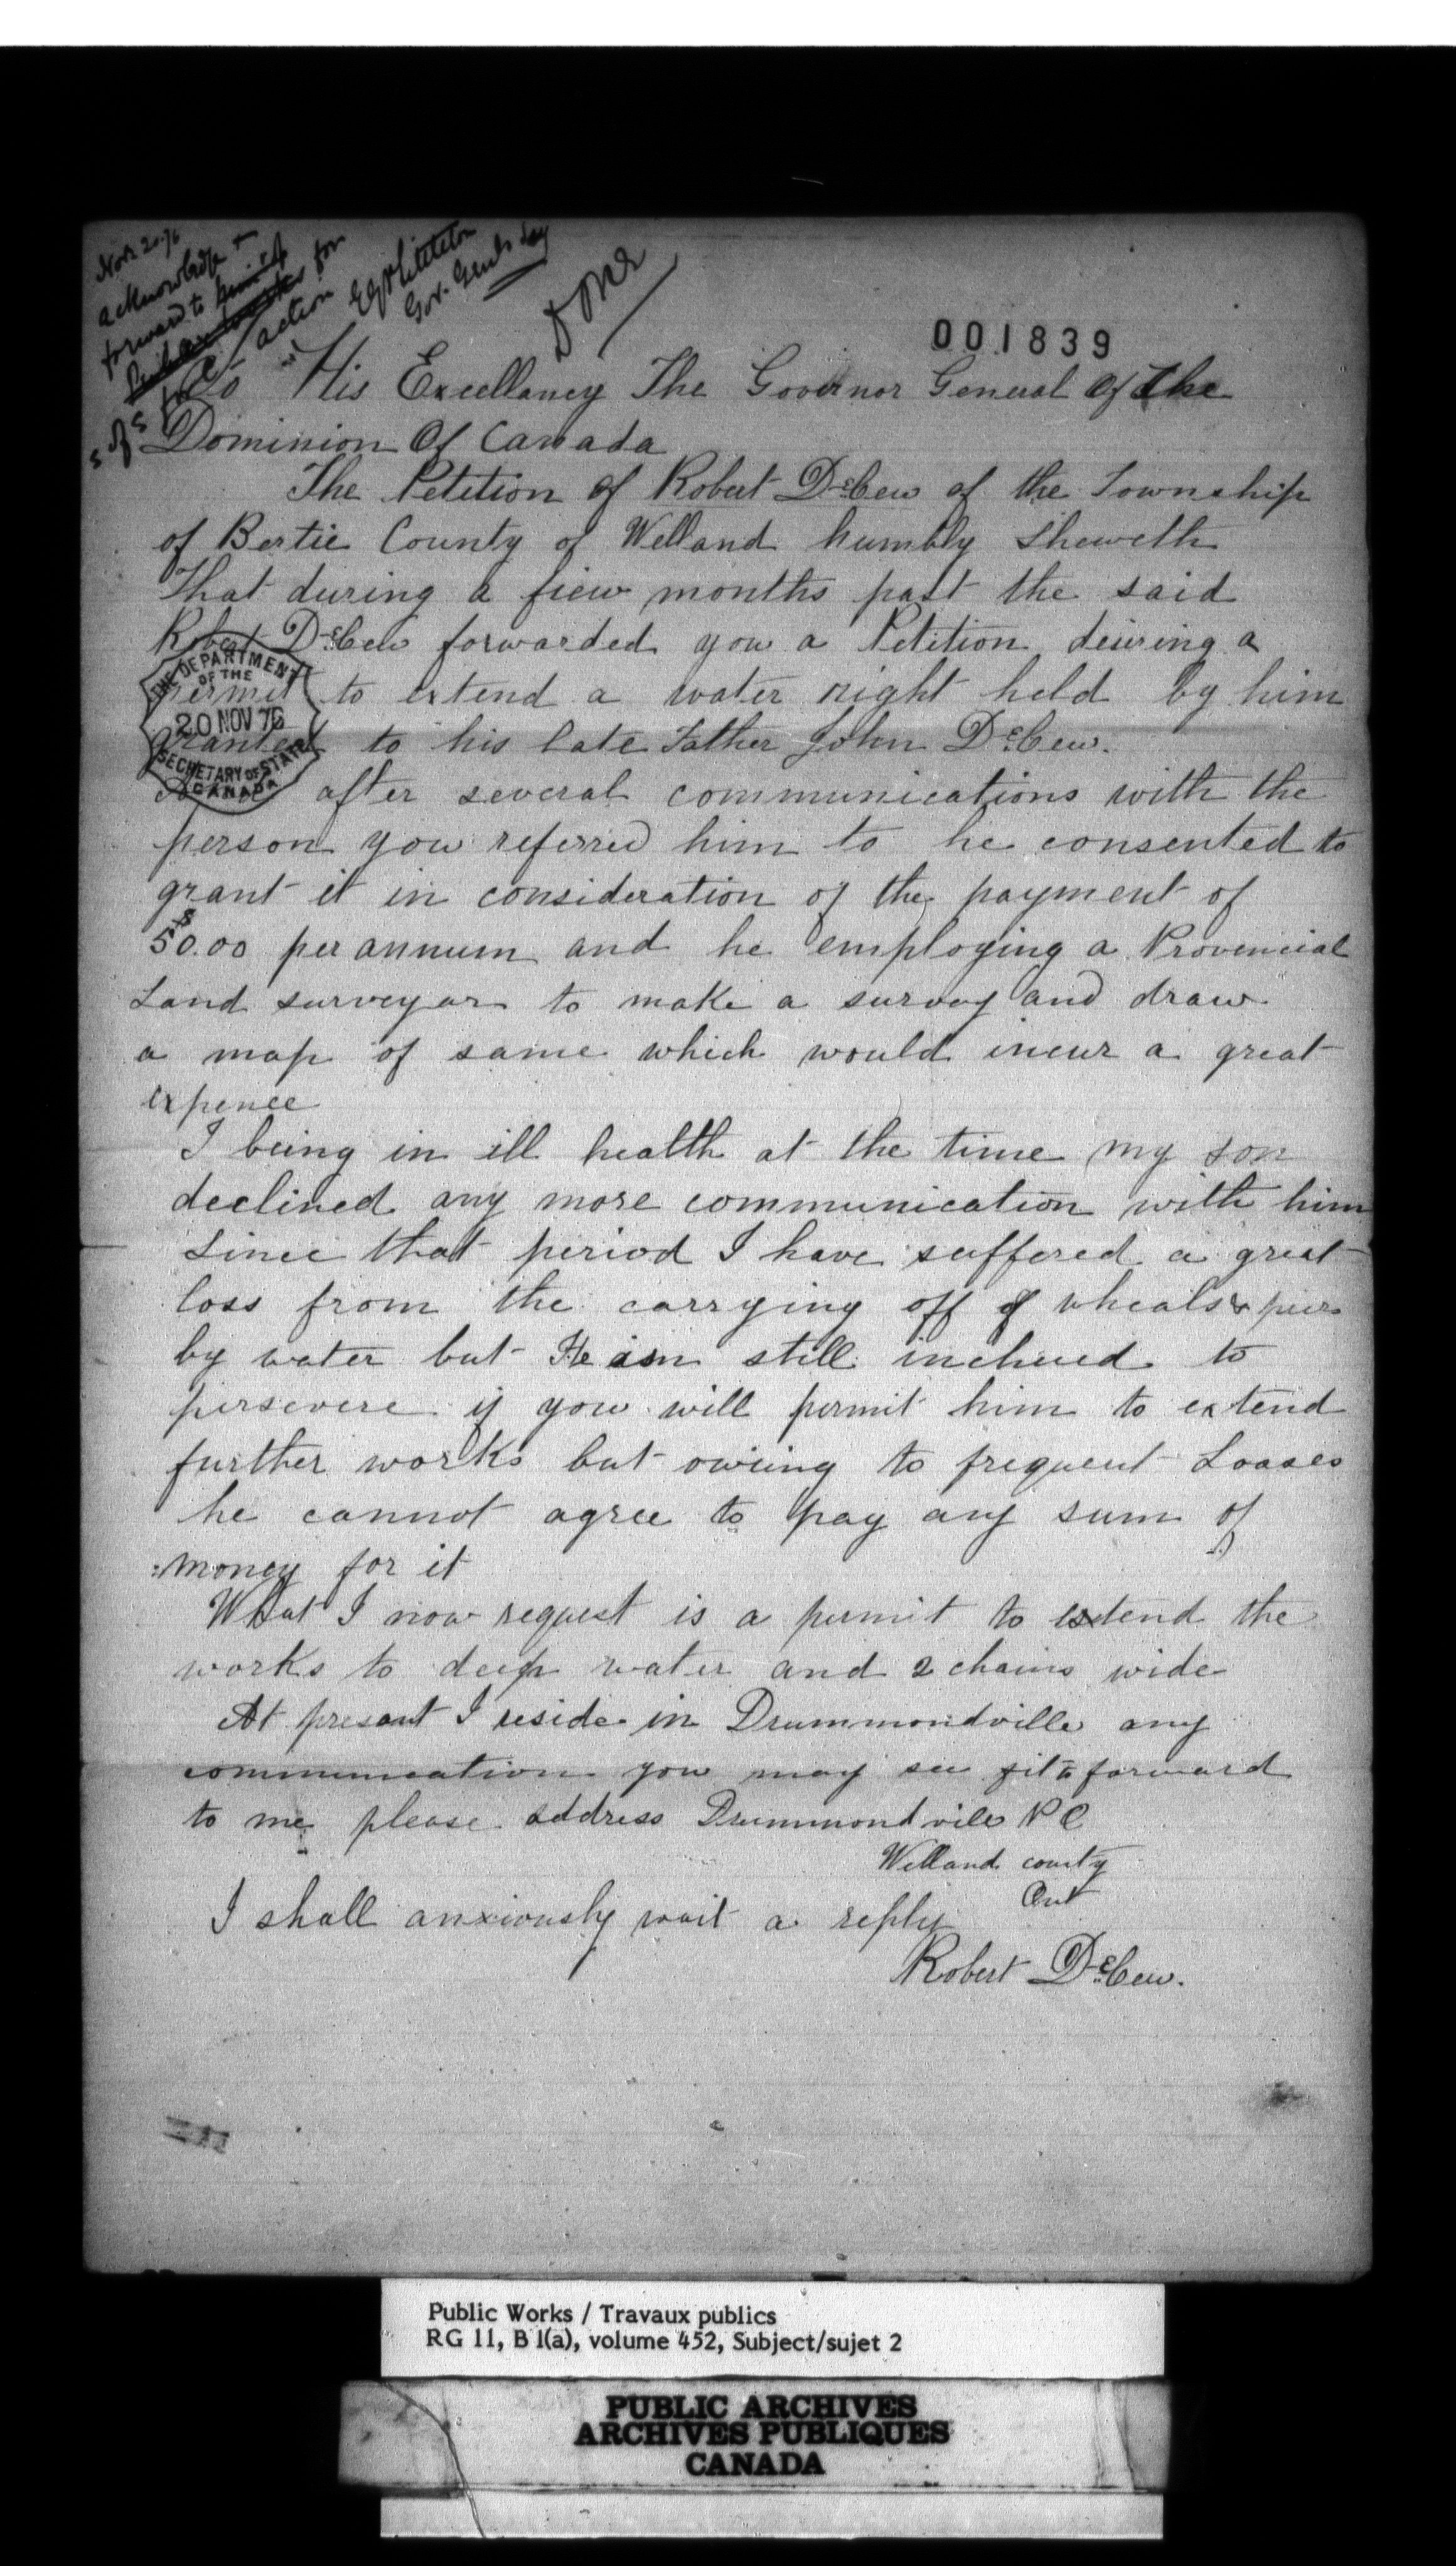 Nov. 20. 76
acknowledge &
forward to
for
action
Gov. Genl's Sey
Done
001839
To His Excellancy The Governor General Of The
Dominion Of Canada
The Petition of Robert DeCew of the Township
of Bertie County of Welland humbly Sheweth
That during a fiew months past the said
Robert DeCew forwarded you a Petition deiring a
permit to extend a water right held by him
granted to his late Father John DeCew.
after several communications with the
person you referred him to he consented to
grant it in consideration of the payment of
$50.00 per annum and he employing a Provencial
Land surveyor to make a survey and draw
a map of same which would incur a great
expence
I being in ill health at the time my son
declined any more communication with him
Since that period I have suffered a great
loss from the carrying off of wheals & piers
by water but He is still inclined to
persevere if you will permit him to extend
further works but owing to frequent Loases
he cannot agree to pay any sum of
money for it
What I now request is a permit to extend the
works to deep water and 2 chains wide
At present I reside in Drummondville any
communication you may see fit to forward
to me please address Drummondvile P O
Welland county
Ont
I shall anxiously wait a reply
Robert DeCew.
THE DEPARTMENT
OF THE
20 NOV 76
SECRETARY OF STATE
CANADA
Public Works / Travaux publics
RG 11, B 1(a), volume 452, Subject/sujet 2
PUBLIC ARCHIVES
ARCHIVES PUBLIQUES
CANADA